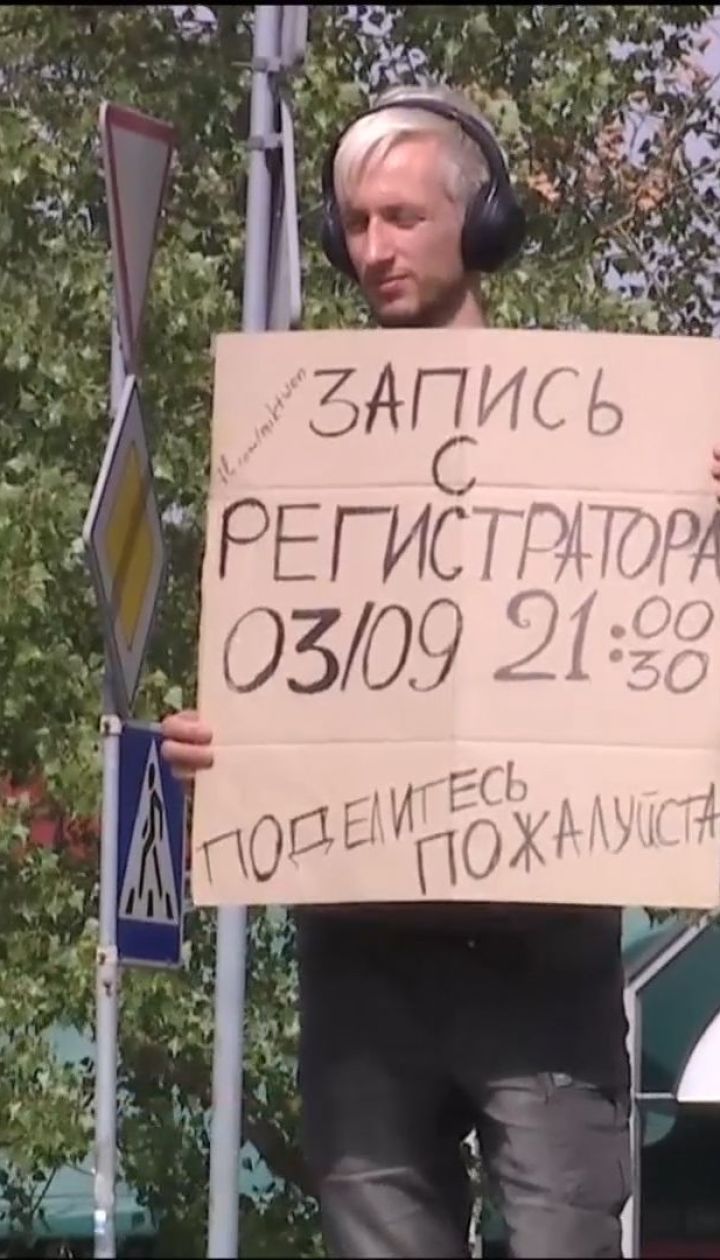 ЗАПИСЬ
С
РЕГИСТРАТОРА
03/09 21:00
30
ПОДЕЛИТЕСЬ
ПОЖАЛУЙСТА